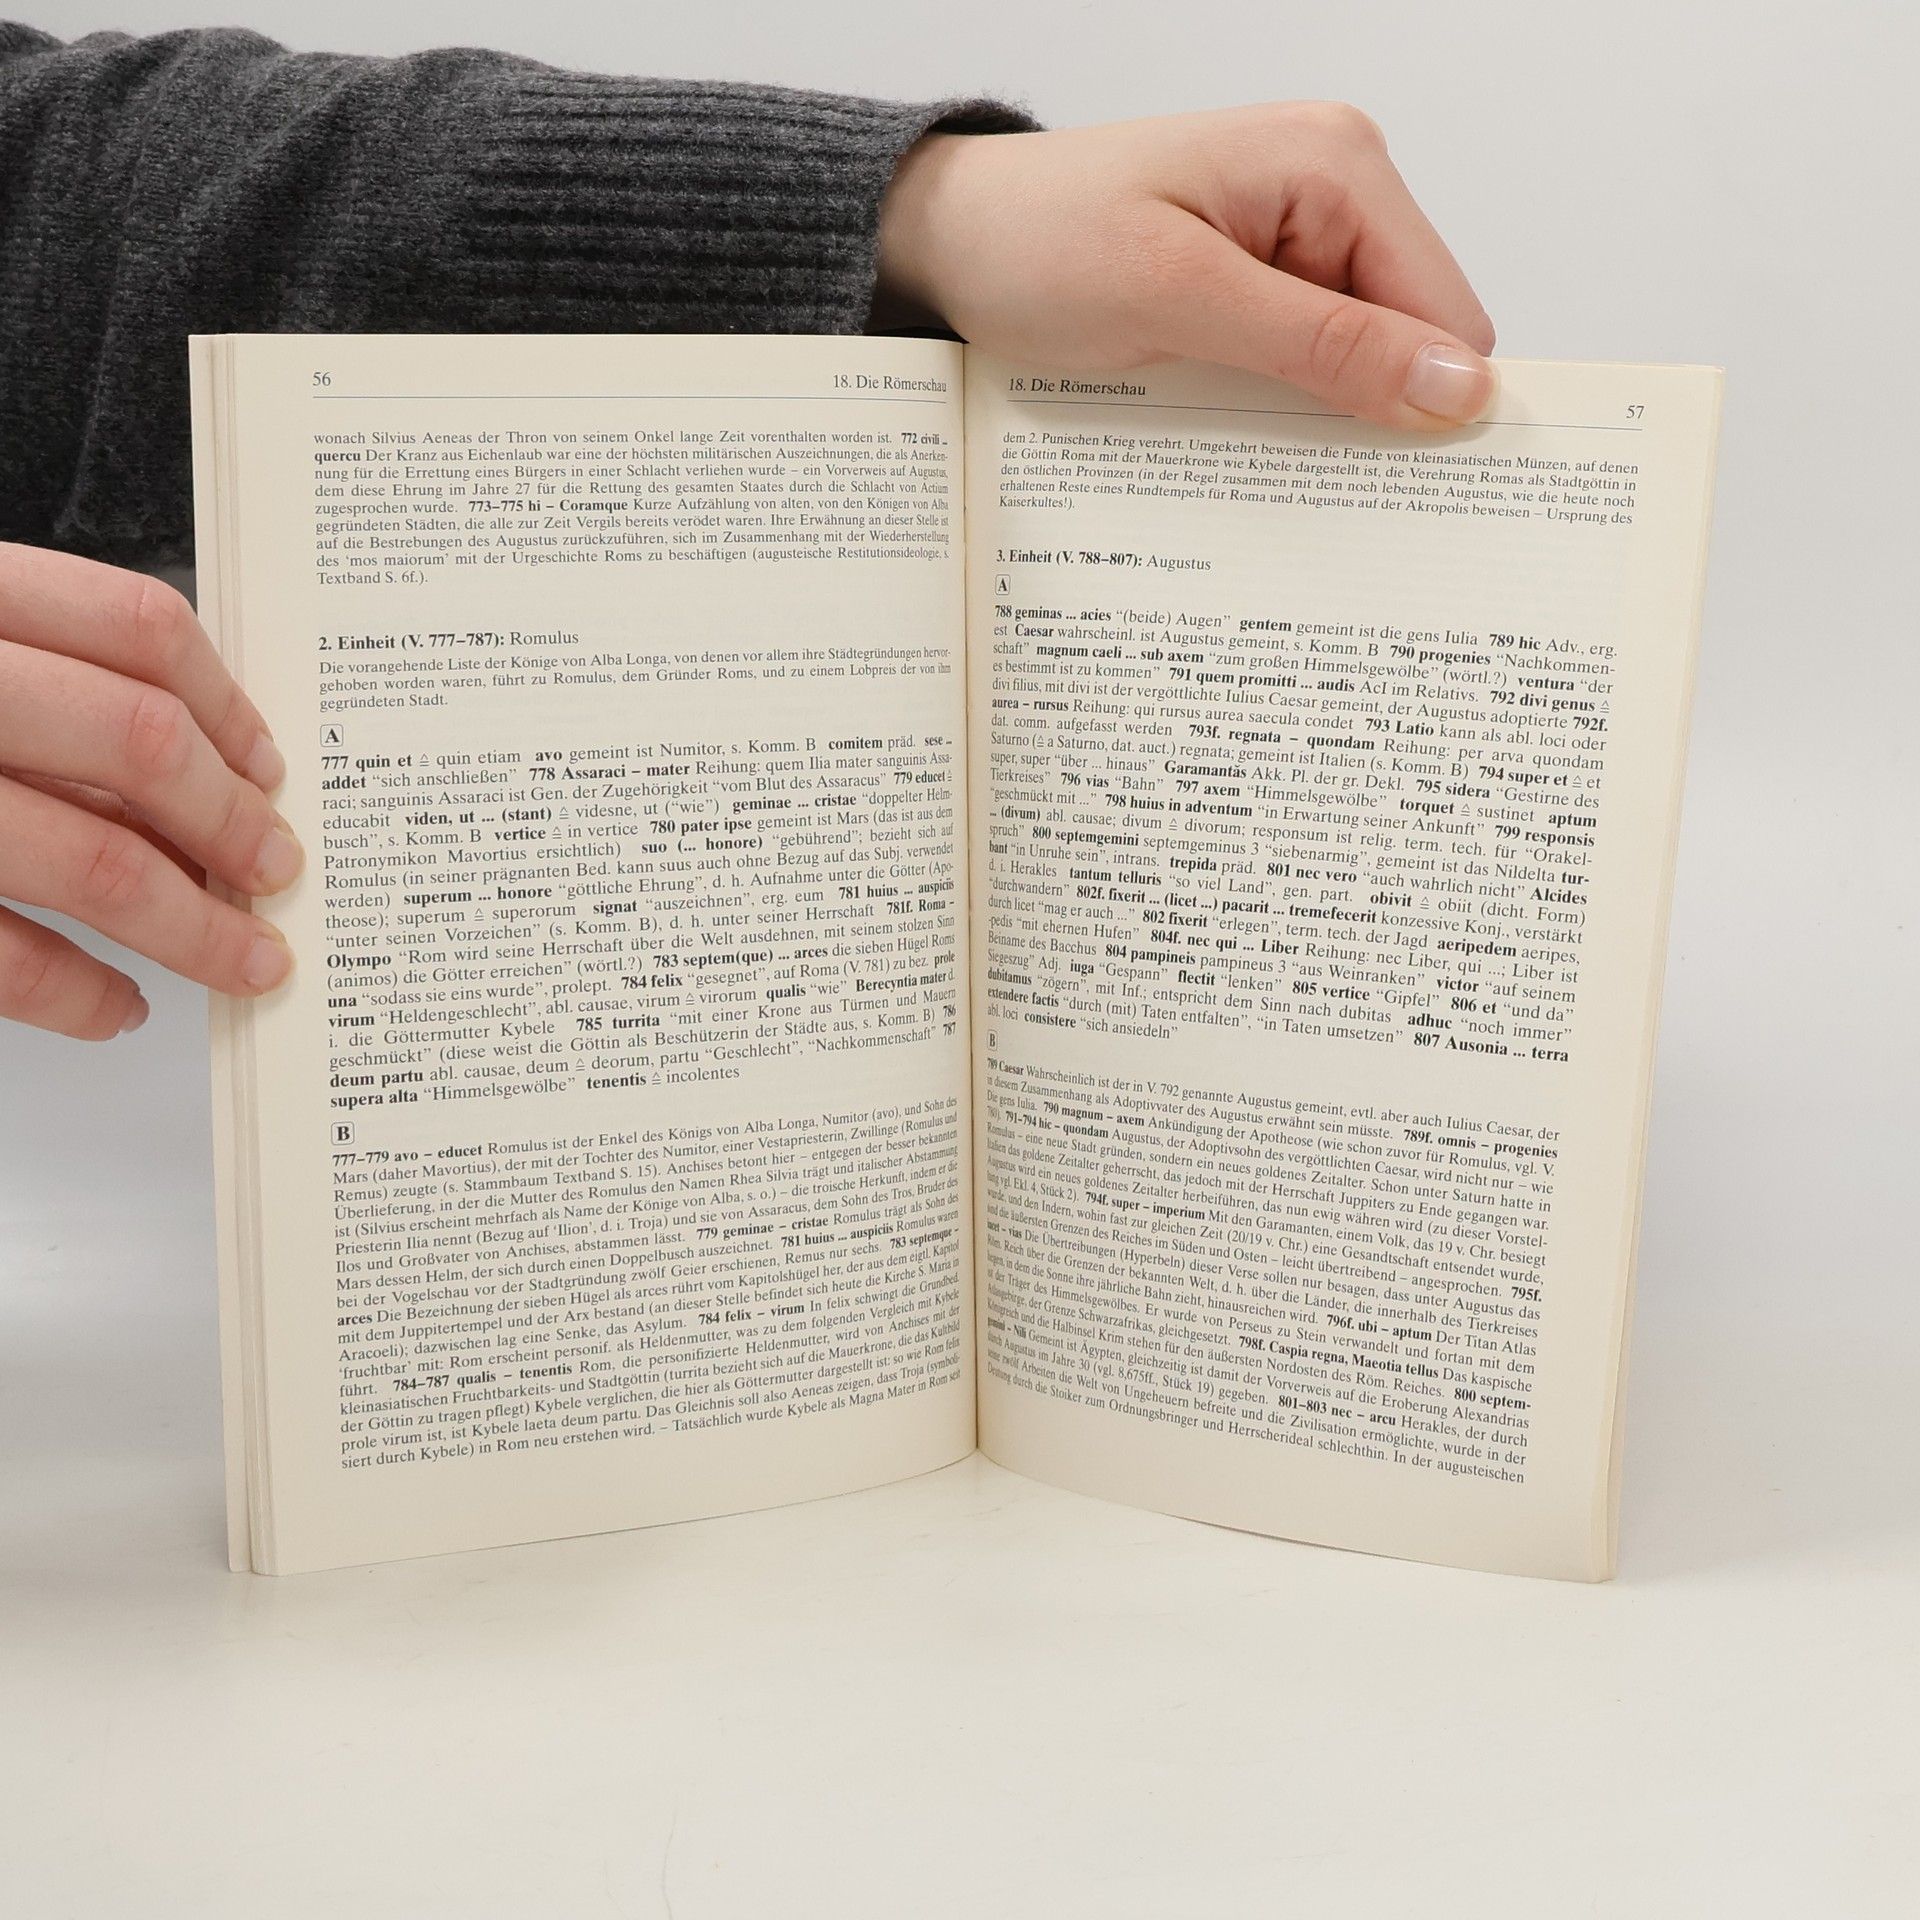 56
18. Die Römerschau
wonach Silvius Aeneas der Thron von seinem Onkel lange Zeit vorenthalten worden ist. 772 civili ...
quercu Der Kranz aus Eichenlaub war eine der höchsten militärischen Auszeichnungen, die als Anerken-
nung für die Errettung eines Bürgers in einer Schlacht verliehen wurde – ein Vorverweis auf Augustus,
dem diese Ehrung im Jahre 27 für die Rettung des gesamten Staates durch die Schlacht von Actium
zugesprochen wurde. 773–775 hi – Coramque Kurze Aufzählung von alten, von den Königen von Alba
gegründeten Städten, die alle zur Zeit Vergils bereits verödet waren. Ihre Erwähnung an dieser Stelle ist
auf die Bestrebungen des Augustus zurückzuführen, sich im Zusammenhang mit der Wiederherstellung
des ‘mos maiorum’ mit der Urgeschichte Roms zu beschäftigen (augusteische Restitutionsideologie, s.
Textband S. 6f.).
2. Einheit (V. 777–787): Romulus
Die vorangehende Liste der Könige von Alba Longa, von denen vor allem ihre Städtegründungen hervor-
gehoben worden waren, führt zu Romulus, dem Gründer Roms, und zu einem Lobpreis der von ihm
gegründeten Stadt.
A
777 quin et ≙ quin etiam avo gemeint ist Numitor, s. Komm. B comitem präd. sese ...
addet “sich anschließen” 778 Assaraci – mater Reihung: quem Ilia mater sanguinis Assa-
raci; sanguinis Assaraci ist Gen. der Zugehörigkeit “vom Blut des Assaracus” 779 educet ≙
educabit viden, ut ... (stant) ≙ videsne, ut (“wie”) geminae ... cristae “doppelter Helm-
busch”, s. Komm. B vertice ≙ in vertice 780 pater ipse gemeint ist Mars (das ist aus dem
Patronymikon Mavortius ersichtlich) suo (... honore) “gebührend”; bezieht sich auf
Romulus (in seiner prägnanten Bed. kann suus auch ohne Bezug auf das Subj. verwendet
werden) superum ... honore “göttliche Ehrung”, d. h. Aufnahme unter die Götter (Apo-
theose); superum ≙ superorum signat “auszeichnen”, erg. eum 781 huius ... auspiciis
“unter seinen Vorzeichen” (s. Komm. B), d. h. unter seiner Herrschaft 781f. Roma –
Olympo “Rom wird seine Herrschaft über die Welt ausdehnen, mit seinem stolzen Sinn
(animos) die Götter erreichen” (wörtl.?) 783 septem(que) ... arces die sieben Hügel Roms
una “sodass sie eins wurde”, prolept. 784 felix “gesegnet”, auf Roma (V. 781) zu bez. prole
virum “Heldengeschlecht”, abl. causae, virum ≙ virorum qualis “wie” Berecyntia mater d.
i. die Göttermutter Kybele 785 turrita “mit einer Krone aus Türmen und Mauern
geschmückt” (diese weist die Göttin als Beschützerin der Städte aus, s. Komm. B) 786
deum partu abl. causae, deum ≙ deorum, partu “Geschlecht”, “Nachkommenschaft” 787
supera alta “Himmelsgewölbe” tenentis ≙ incolentes
B
777–779 avo – educet Romulus ist der Enkel des Königs von Alba Longa, Numitor (avo), und Sohn des
Mars (daher Mavortius), der mit der Tochter des Numitor, einer Vestapriesterin, Zwillinge (Romulus und
Remus) zeugte (s. Stammbaum Textband S. 15). Anchises betont hier – entgegen der besser bekannten
Überlieferung, in der die Mutter des Romulus den Namen Rhea Silvia trägt und italischer Abstammung
ist (Silvius erscheint mehrfach als Name der Könige von Alba, s. o.) – die troische Herkunft, indem er die
Priesterin Ilia nennt (Bezug auf ‘Ilion’, d. i. Troja) und sie von Assaracus, dem Sohn des Tros, Bruder des
Ilos und Großvater von Anchises, abstammen lässt. 779 geminae – cristae Romulus trägt als Sohn des
Mars dessen Helm, der sich durch einen Doppelbusch auszeichnet. 781 huius ... auspiciis Romulus waren
bei der Vogelschau vor der Stadtgründung zwölf Geier erschienen, Remus nur sechs. 783 septemque –
arces Die Bezeichnung der sieben Hügel als arces rührt vom Kapitolshügel her, der aus dem eigtl. Kapitol
mit dem Juppitertempel und der Arx bestand (an dieser Stelle befindet sich heute die Kirche S. Maria in
Aracoeli); dazwischen lag eine Senke, das Asylum. 784 felix – virum In felix schwingt die Grundbed.
‘fruchtbar’ mit: Rom erscheint personif. als Heldenmutter, was zu dem folgenden Vergleich mit Kybele
führt. 784–787 qualis – tenentis Rom, die personifizierte Heldenmutter, wird von Anchises mit der
kleinasiatischen Fruchtbarkeits- und Stadtgöttin (turrita bezieht sich auf die Mauerkrone, die das Kultbild
der Göttin zu tragen pflegt) Kybele verglichen, die hier als Göttermutter dargestellt ist: so wie Rom felix
prole virum ist, ist Kybele laeta deum partu. Das Gleichnis soll also Aeneas zeigen, dass Troja (symboli-
siert durch Kybele) in Rom neu erstehen wird. – Tatsächlich wurde Kybele als Magna Mater in Rom seit
18. Die Römerschau
57
dem 2. Punischen Krieg verehrt. Umgekehrt beweisen die Funde von kleinasiatischen Münzen, auf denen
die Göttin Roma mit der Mauerkrone wie Kybele dargestellt ist, die Verehrung Romas als Stadtgöttin in
den östlichen Provinzen (in der Regel zusammen mit dem noch lebenden Augustus, wie die heute noch
erhaltenen Reste eines Rundtempels für Roma und Augustus auf der Akropolis beweisen – Ursprung des
Kaiserkultes!).
3. Einheit (V. 788–807): Augustus
A
788 geminas ... acies “(beide) Augen” gentem gemeint ist die gens Iulia 789 hic Adv., erg.
est Caesar wahrscheinl. ist Augustus gemeint, s. Komm. B 790 progenies “Nachkommen-
schaft” magnum caeli ... sub axem “zum großen Himmelsgewölbe” (wörtl.?) ventura “der
es bestimmt ist zu kommen” 791 quem promitti ... audis AcI im Relativs. 792 divi genus ≙
divi filius, mit divi ist der vergöttlichte Iulius Caesar gemeint, der Augustus adoptierte 792f.
aurea – rursus Reihung: qui rursus aurea saecula condet 793 Latio kann als abl. loci oder
dat. comm. aufgefasst werden 793f. regnata – quondam Reihung: per arva quondam
Saturno (≙ a Saturno, dat. auct.) regnata; gemeint ist Italien (s. Komm. B) 794 super et ≙ et
super, super “über ... hinaus” Garamantăs Akk. Pl. der gr. Dekl. 795 sidera “Gestirne des
Tierkreises” 796 vias “Bahn” 797 axem “Himmelsgewölbe” torquet ≙ sustinet aptum
“geschmückt mit ...” 798 huius in adventum “in Erwartung seiner Ankunft” 799 responsis
... (divum) abl. causae; divum ≙ divorum; responsum ist relig. term. tech. für “Orakel-
spruch” 800 septemgemini septemgeminus 3 “siebenarmig”, gemeint ist das Nildelta tur-
bant “in Unruhe sein”, intrans. trepida präd. 801 nec vero “auch wahrlich nicht” Alcides
d. i. Herakles tantum telluris “so viel Land”, gen. part. obivit ≙ obiit (dicht. Form)
“durchwandern” 802f. fixerit ... (licet ...) pacarit ... tremefecerit konzessive Konj., verstärkt
durch licet “mag er auch ...” 802 fixerit “erlegen”, term. tech. der Jagd aeripedem aeripes,
-pedis “mit ehernen Hufen” 804f. nec qui ... Liber Reihung: nec Liber, qui ...; Liber ist
Beiname des Bacchus 804 pampineis pampineus 3 “aus Weinranken” victor “auf seinem
Siegeszug” Adj. iuga “Gespann” flectit “lenken” 805 vertice “Gipfel” 806 et “und da”
dubitamus “zögern”, mit Inf.; entspricht dem Sinn nach dubitas adhuc “noch immer”
extendere factis “durch (mit) Taten entfalten”, “in Taten umsetzen” 807 Ausonia ... terra
abl. loci consistere “sich ansiedeln”
B
789 Caesar Wahrscheinlich ist der in V. 792 genannte Augustus gemeint, evtl. aber auch Iulius Caesar, der
in diesem Zusammenhang als Adoptivvater des Augustus erwähnt sein müsste. 789f. omnis – progenies
Die gens Iulia. 790 magnum – axem Ankündigung der Apotheose (wie schon zuvor für Romulus, vgl. V.
780). 791–794 hic – quondam Augustus, der Adoptivsohn des vergöttlichten Caesar, wird nicht nur – wie
Romulus – eine neue Stadt gründen, sondern ein neues goldenes Zeitalter. Schon unter Saturn hatte in
Italien das goldene Zeitalter geherrscht, das jedoch mit der Herrschaft Juppiters zu Ende gegangen war.
Augustus wird ein neues goldenes Zeitalter herbeiführen, das nun ewig währen wird (zu dieser Vorstel-
lung vgl. Ekl. 4, Stück 2). 794f. super – imperium Mit den Garamanten, einem Volk, das 19 v. Chr. besiegt
wurde, und den Indern, wohin fast zur gleichen Zeit (20/19 v. Chr.) eine Gesandtschaft entsendet wurde,
sind die äußersten Grenzen des Reiches im Süden und Osten – leicht übertreibend – angesprochen. 795f.
iacet – vias Die Übertreibungen (Hyperbeln) dieser Verse sollen nur besagen, dass unter Augustus das
Röm. Reich über die Grenzen der bekannten Welt, d. h. über die Länder, die innerhalb des Tierkreises
liegen, in dem die Sonne ihre jährliche Bahn zieht, hinausreichen wird. 796f. ubi – aptum Der Titan Atlas
ist der Träger des Himmelsgewölbes. Er wurde von Perseus zu Stein verwandelt und fortan mit dem
Atlasgebirge, der Grenze Schwarzafrikas, gleichgesetzt. 798f. Caspia regna, Maeotia tellus Das kaspische
Königreich und die Halbinsel Krim stehen für den äußersten Nordosten des Röm. Reiches. 800 septem-
gemini – Nili Gemeint ist Ägypten, gleichzeitig ist damit der Vorverweis auf die Eroberung Alexandrias
durch Augustus im Jahre 30 (vgl. 8,675ff., Stück 19) gegeben. 801–803 nec – arcu Herakles, der durch
seine zwölf Arbeiten die Welt von Ungeheuern befreite und die Zivilisation ermöglichte, wurde in der
Deutung durch die Stoiker zum Ordnungsbringer und Herrscherideal schlechthin. In der augusteischen